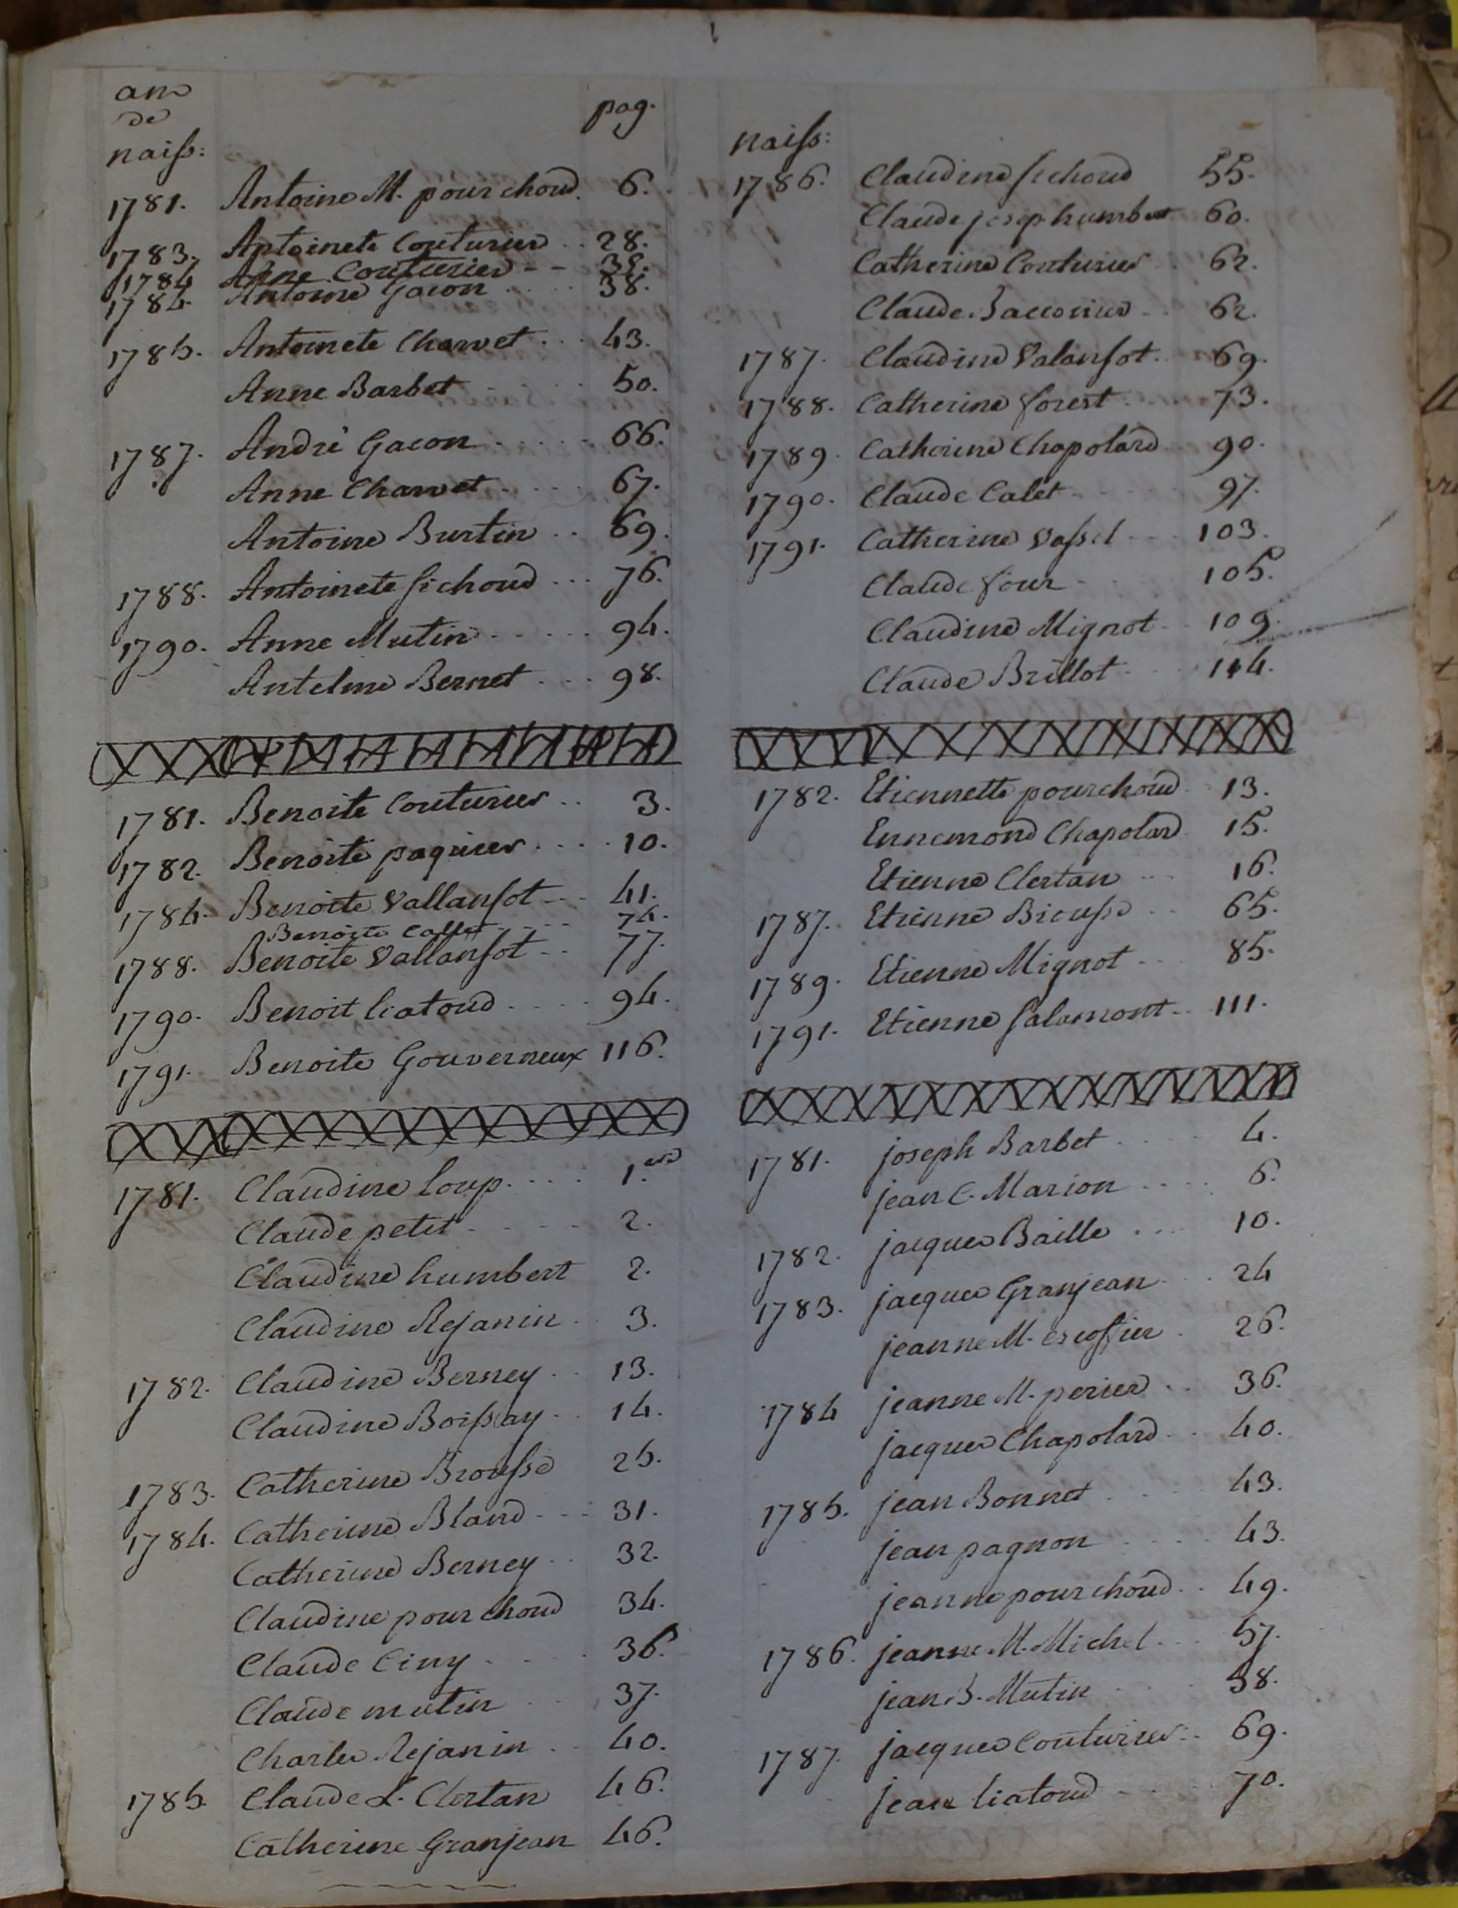 an
de
naiss: pag.
1781. Antoine M. pourchoud. 6.
1783. Antoinete Couturier 28.
1784 Anne Couturier 35.
1784 Antoine Gacon 38.
1785. Antoinete Charvet 43.
Anne Barbet 50.
1787. André Gacon 66.
Anne Charvet 67.
Antoine Burtin 69.
1788. Antoinete sichoud 76.
1790. Anne Mutin 94.
Antelme Bernet 98.
1781. Benoite Couturier 3.
1782. Benoite paquier 10.
1784. Benoite Vallansot 41.
Benoite Callet 74.
1788. Benoite Vallansot 77.
1790. Benoit liatoud 94.
1791. Benoite Gouverneux 116.
1781. Claudine loup 1.ere
Claude petit 2.
Claudine humbert 2.
Claudine Rejanin 3.
1782. Claudine Berney 13.
Claudine Boissay 14.
1783. Catherine Brousse 25.
1784. Catherine Bland 31.
Catherine Berney 32.
Claudine pourchoud 34.
Claude Ciny 36.
Claude mutin 37.
Charles Rejanin 40.
1785. Claude L. Clertan 46.
Catherine Granjean 46.
naiss:
1786. Claudine sichoud 55.
Claude joseph humbert 60.
Catherine Couturier 62.
Claude 62.
1787. Claudine Valansot 69.
1788. Catherine forest 73.
1789. Catherine Chapolard 90.
1790. Claude Calet 97.
1791. Catherine Vassel 103.
Claude four 105.
Claudine Mignot 109.
Claude Brillot 114.
1782. Etiennette pourchoud 13.
Ennemond Chapolard 15.
Etienne Clertan 16.
1787. Etienne 65.
1789. Etienne Mignot 85.
1791. Etienne salamont 111.
1781. joseph Barbet 4.
jean C. Marion 6.
1782. jacques Baille 10.
1783. jacques Granjean 24
jeanne M. escoffier 26.
1784 jeanne M. perier 36.
jacques Chapolard 40.
1785. jean Bonnet 43.
jean pagnon 43.
jeanne pourchoud 49.
1786. jeanne M. Michel 57.
jean B. Mutin 58.
1787. jacques Couturier 69.
jean liatoud 70.